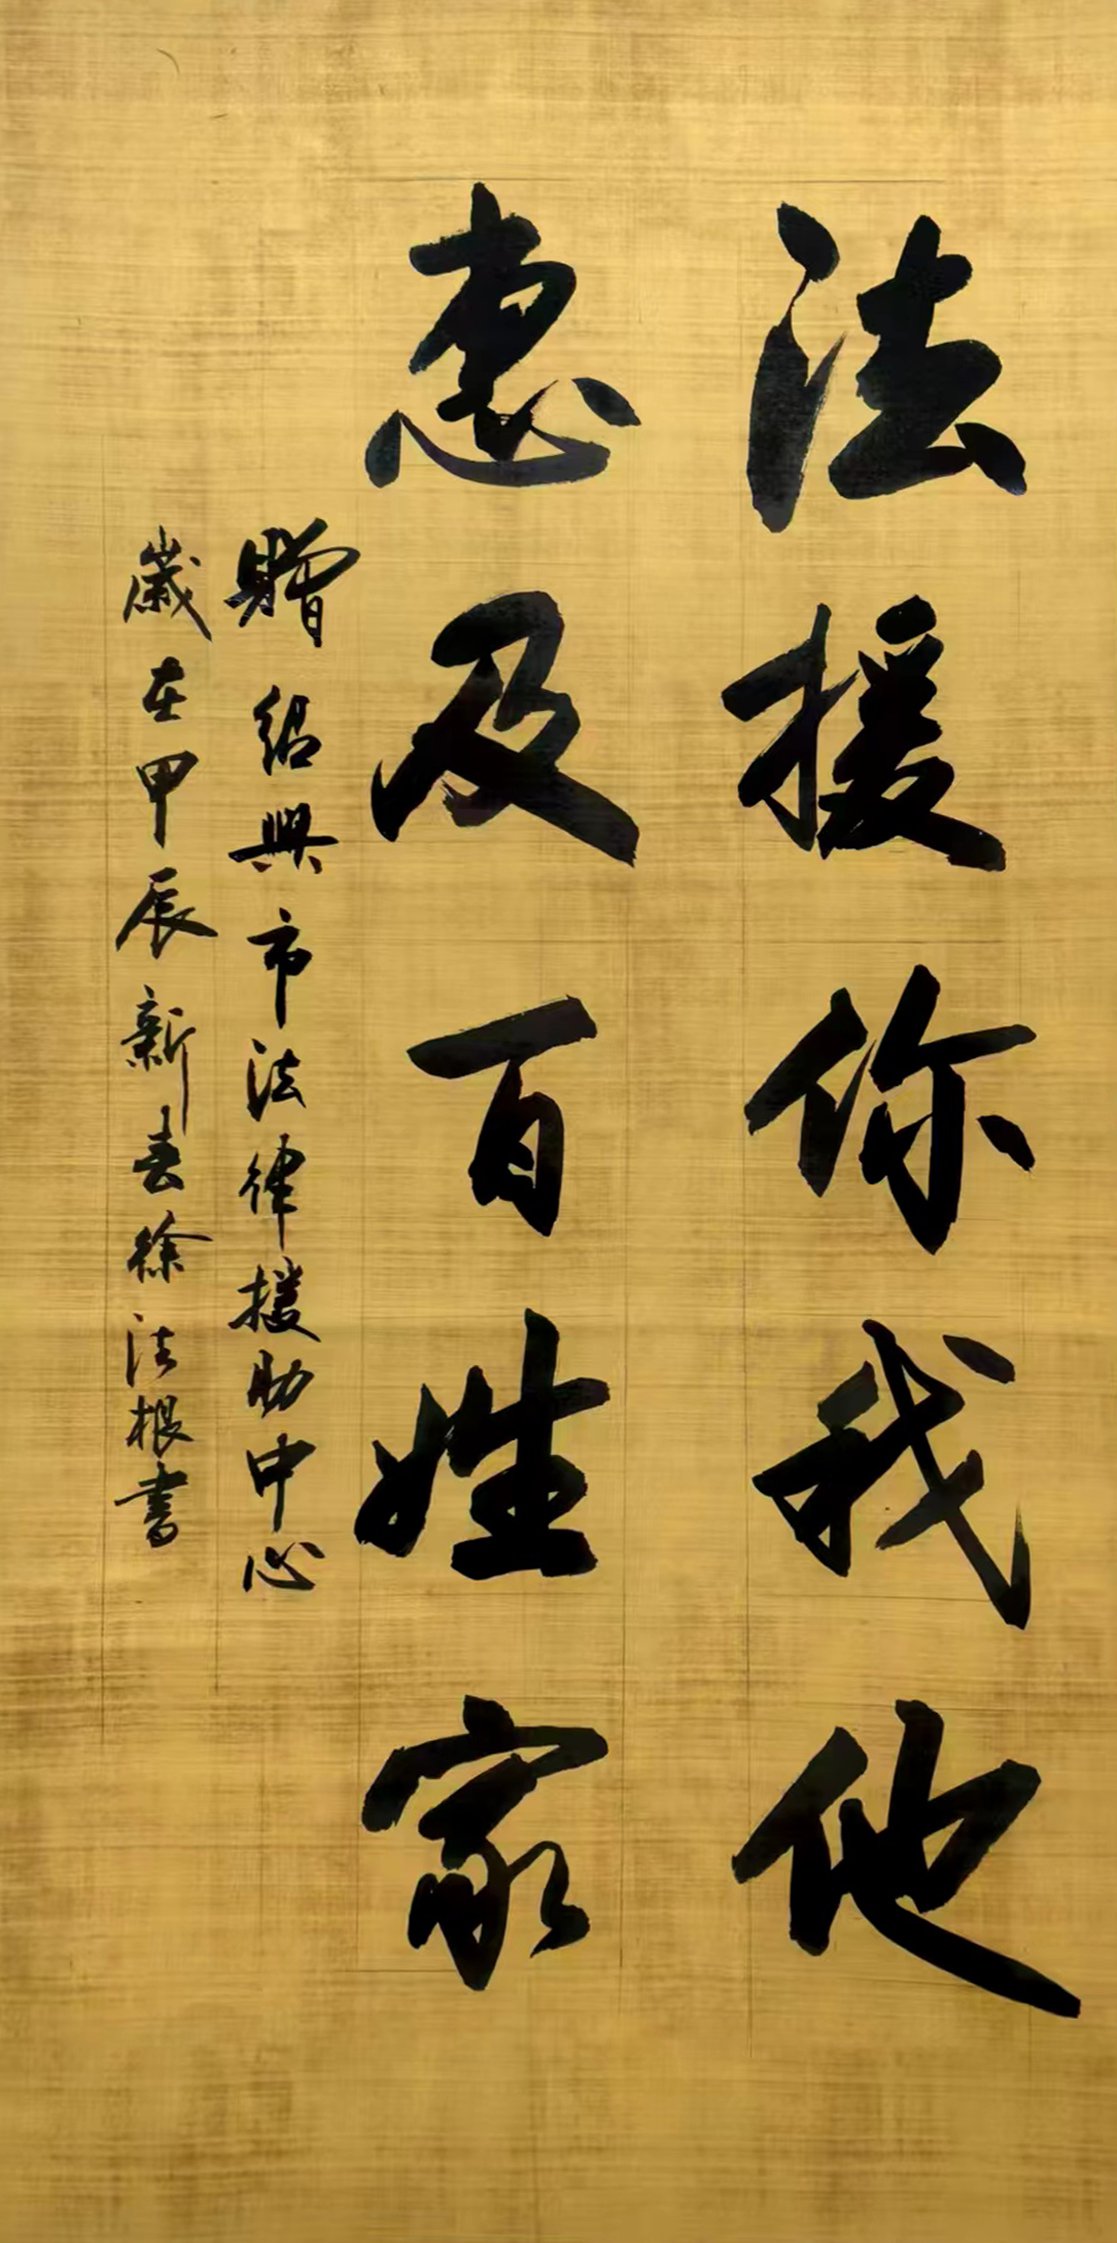 法援你我他
惠及百姓家
贈紹興市法律援助中心
歲在甲辰新春徐法根書